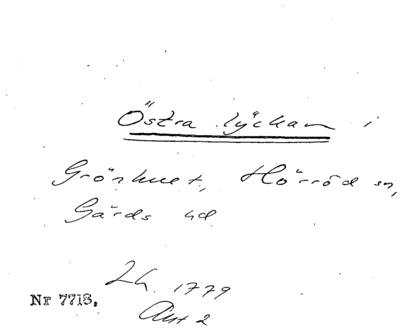 Östra lyckan i
Grönhult, Hörröd sn,
Gärds hd
Lh. 1779
Akt 2
Nr 7718.